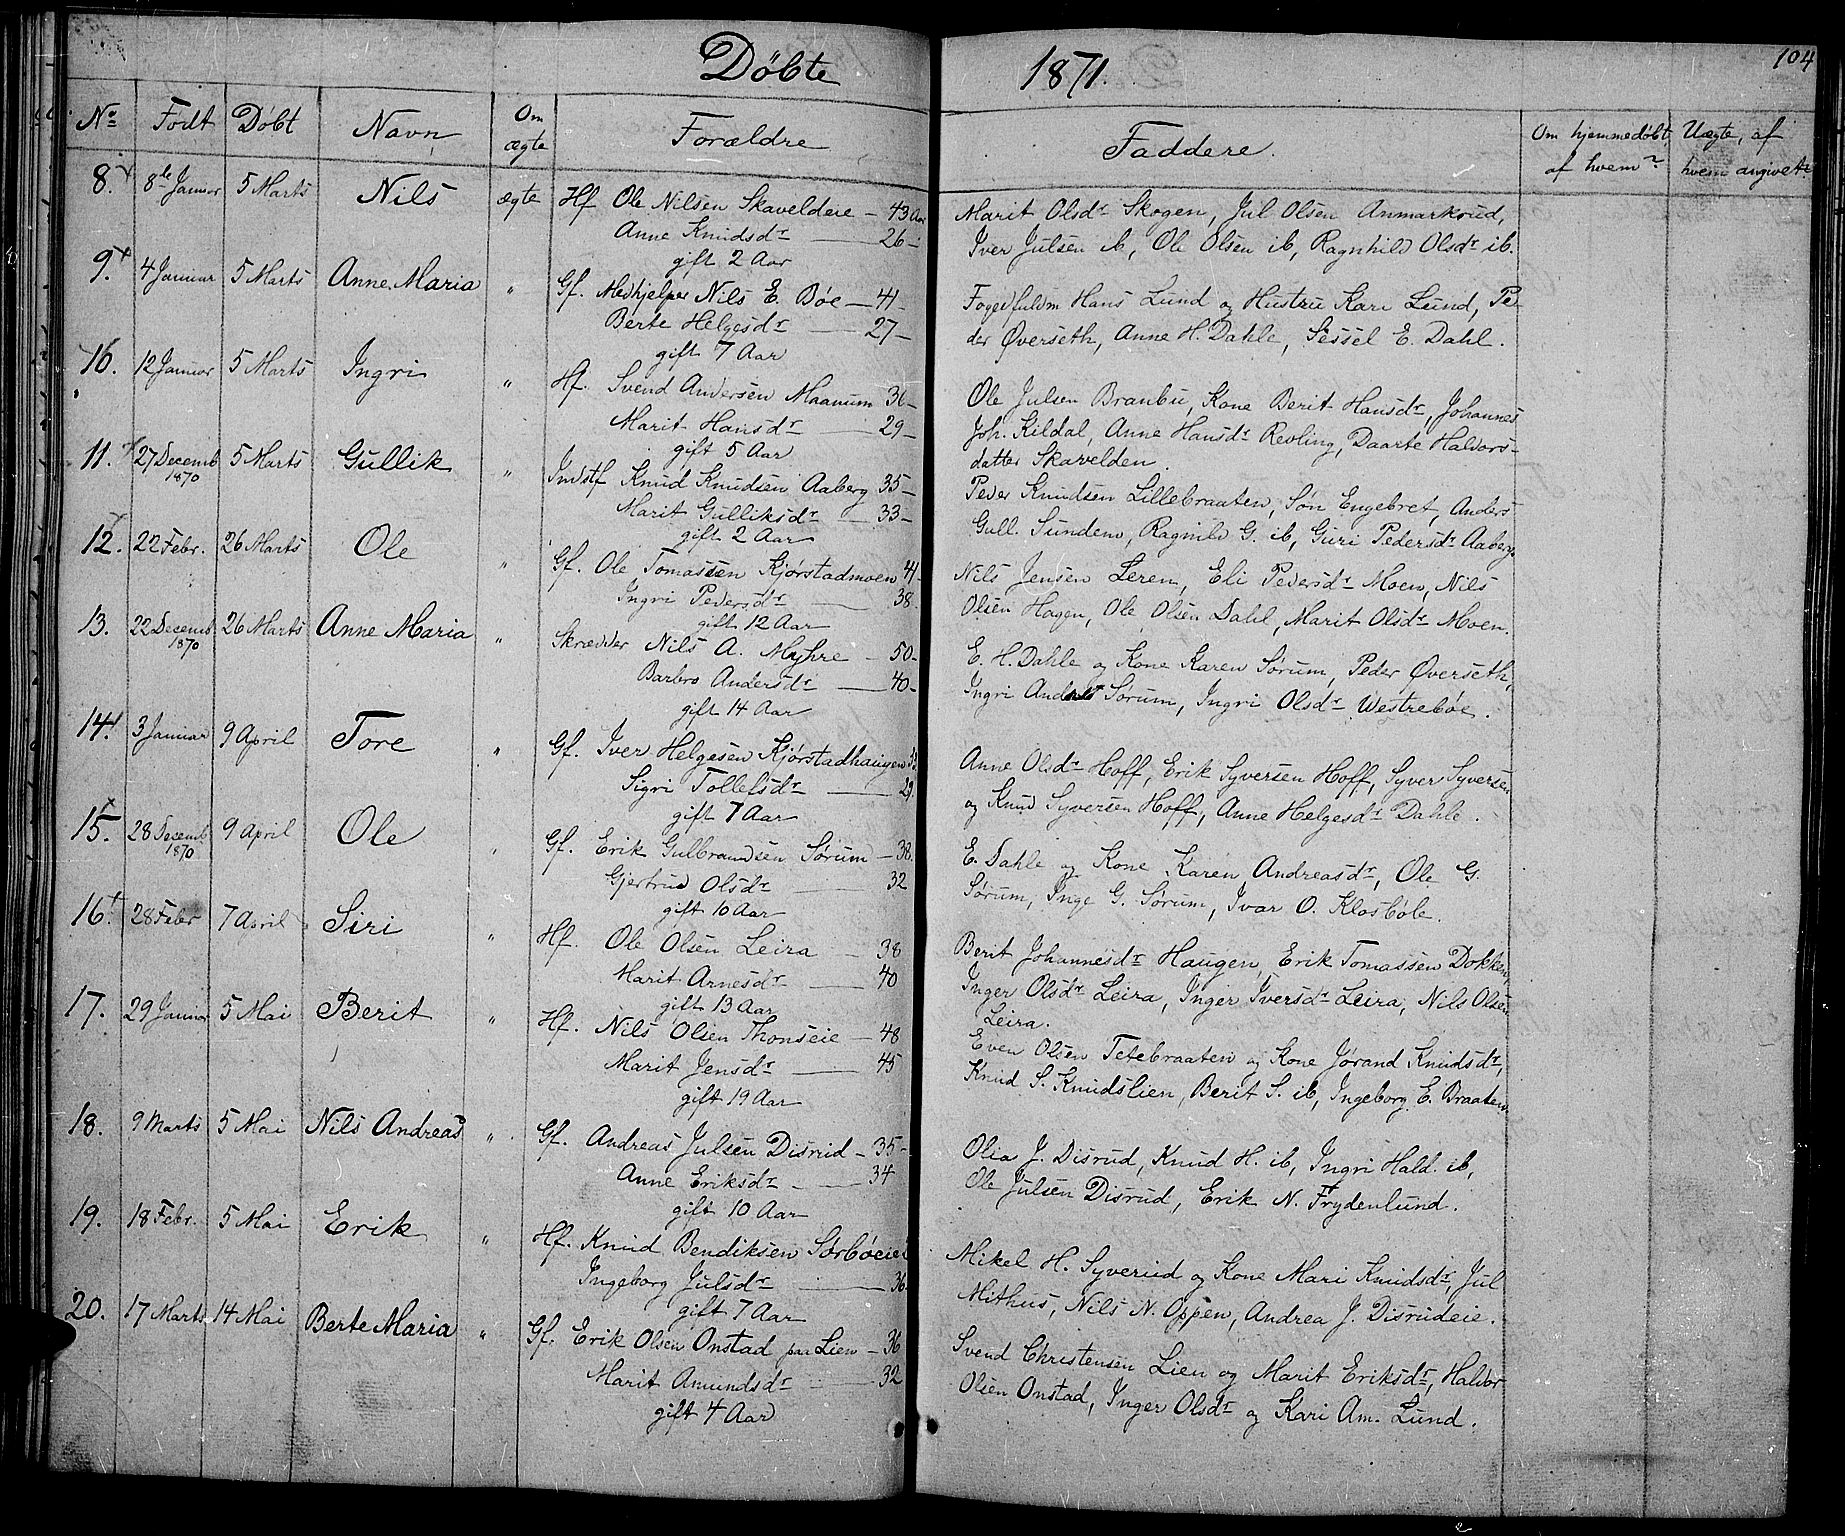 Døbte 1871. 104
No Født Døbt Navn Om ægte Forældre Faddere. Om hjemmedøbt, af hvem? Uægte, af hvem angivet?
8. 8de Januar 5 Marts Nils ægte Hf Ole Nilsen Skaveldere — 43 Aar
Anne Knudsdr — 26 —
gift 2 Aar
Marit Olsdr Skogen, Jul Olsen Anmarkrud,
Iver Julsen ib, Ole Olsen ib, Ragnhild Olsdr ib.
9. 4 Januar 5 Marts Anne Maria " Gf. Medhjelper Nils E. Bøe — 41 —
Berte Helgesdr — 27 —
gift 7 Aar
Fogedfuldm Hans Lund og Hustru Kari Lund, Pe-
der Øverseth, Anne H. Dahle, Sessel E. Dahl.
10. 12 Januar 5 Marts Ingri " Hf. Svend Andersen Maanum 36 —
Marit Hansdr — 29 —
gift 5 Aar
Ole Julsen Branbu, Kone Berit Hansdr, Johannes
Joh. Kildal, Anne Hansdr Revling, Daarte Halvors-
datter Skavelden.
11. 27 Decemb 1870 5 Marts Gullik " Indstf Knud Knudsen Aaberg 35 —
Marit Gulliksdr — 33 —
gift 2 Aar
Peder Knudsen Lillebraaten, Søn Engebret, Anders
Gull. Sundem, Ragnild G. ib, Guri Pedersdr Aaberg.
12. 22 Febr. 26 Marts Ole " Gf. Ole Tomassen Kjørstadmoen 41 —
Ingri Pedersdr — 38.
gift 12 Aar
Nils Jensen Leren, Eli Pedersdr Moen, Nils
Olsen Hagen, Ole Olsen Dahl, Marit Olsdr Moen.
13. 22 Decemb 1870 26 Marts Anne Maria " Skrædder Nils A. Myhre — 50 —
Barbro Andersdr — 40 —
gift 14 Aar
E. H. Dahle og Kone Karen Sørum, Peder Øverseth,
Ingri Sørum, Ingri Olsdr Westrebøe.
14. 3 Januar 9 April Tore " Gf. Iver Helgesen Kjørstadhaugen
Sigri Tollefsdr — 29.
gift 7 Aar
Anne Olsdr Hoff, Erik Syversen Hoff, Syver Syversen
og Knud Syversen Hoff, Anne Helgesdr Dahle.
15. 28 Decemb 1870 9 April Ole " Gf. Erik Gulbrandsen Sørum — 38.
Gjertrud Olsdr — 32
gift 10 Aar
E. Dahle og Kone Karen Andreasdr, Ole G.
Sørum, Inge G. Sørum, Ivar O. Klosbøle.
16. 28 Febr 7 April Siri " Hf. Ole Olsen Leira — 38
Marit Arnesdr — 40
gift 13 Aar
Berit Johannesdr Haugen, Erik Tomassen Dokken,
Inger Olsdr Leira, Inger Iversdr Leira, Nils Olsen
Leira.
17. 29 Januar 5 Mai Berit " Hf. Nils Olsen Thonseie — 48
Marit Jensdr — 45
gift 19 Aar
Even Olsen Tetebraaten og Kone Jørand Knudsdr,
Knud S. Knudslien, Berit S. ib, Ingeborg E. Braaten.
18. 9 Marts 5 Mai Nils Andreas " Gf. Andreas Julsen Disrud — 35 —
Anne Eriksdr — 34
gift 10 Aar
Olia J. Disrud, Knud H. ib, Ingri Hald. ib,
Ole Julsen Disrud, Erik N. Frydenlund.
19. 18 Febr. 5 Mai Erik " Hf. Knud Bendiksen Sørbøeie
Ingeborg Julsdr — 36
gift 7 Aar
Mikel H. Syverud og Kone Mari Knudsdr, Jul
Mithus, Nils N. Oppen, Andrea J. Disrudeie.
20. 17 Marts 14 Mai Berte Maria " Gf. Erik Olsen Onstad paa Lien — 36
Marit Amundsdr — 32
gift 4 Aar
Svend Christensen Lien og Marit Eriksdr, Haldor
Olsen Onstad, Inger Olsdr og Kari Am. Lund.